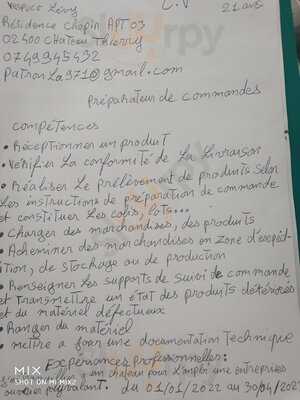 Vespuce Lévy C.V 21 ans
Résidence Chopin APT 03
02400 Chateau Thierry
0749345432
Patronza971@gmail.com
Préparateur de commandes
Compétences
• Réceptionner un produit
• Vérifier La conformité de La Livraison
• Réaliser Le prélèvement de produits selon
Les instructions de préparation de commande
et constituer Les colis, lots...
• Charger des marchandises, des produits
• Acheminer des marchandises en zone d'expéd-
ition, de stockage ou de production
• Renseigner Les supports de suivi de commande
et transmettre un état des produits détériorés
et du matériel défectueux
• Ranger du matériel
• mettre a jour une documentation Technique
Expériences professionnelles:
un chateau pour L'emploi une entreprises
ouvrier polyvalant. du 01/01/2022 au 30/04/202
MIX
SHOT ON MI MIX2